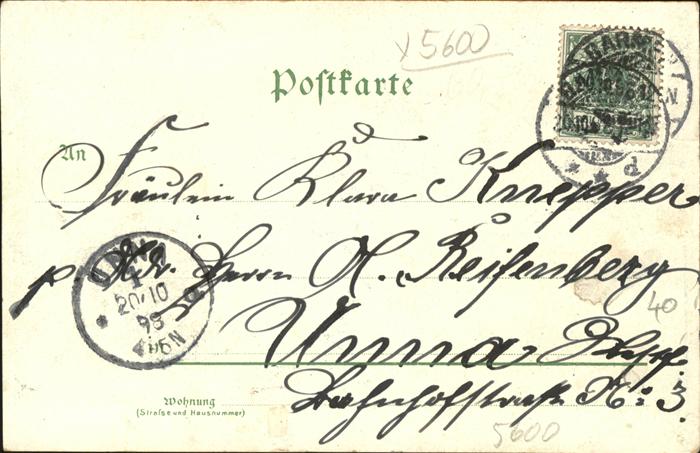 x 5600
Postkarte
BARMEN
An
Fräulein Klara Knepper
p. Adr. Herrn A. Reifenberg
UNNA
20/10
98
4-5 N
40
Unna
Wohnung
(Strasse und Hausnummer)
Bahnhofstraße No: 3.
5600